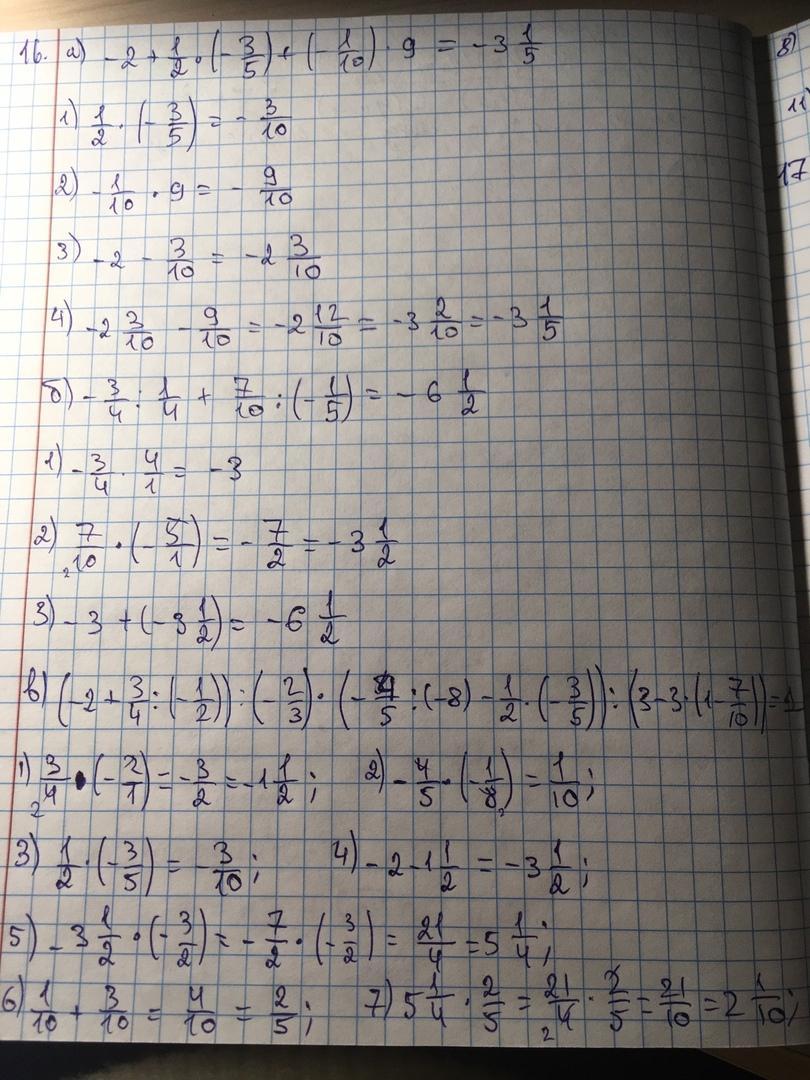 16. а) -2 + 1/2 · (-3/5) + (-1/10) · 9 = -3 1/5
1) 1/2 · (-3/5) = -3/10
2) -1/10 · 9 = -9/10
3) -2 - 3/10 = -2 3/10
4) -2 3/10 - 9/10 = -2 12/10 = -3 2/10 = -3 1/5
б) -3/4 : 1/4 + 7/10 : (-1/5) = -6 1/2
1) -3/4 · 4/1 = -3
2) 7/10 · (-5/1) = -7/2 = -3 1/2
2
3) -3 + (-3 1/2) = -6 1/2
в) (-2 + 3/4 : (-1/2)) : (-2/3) · (-4/5 : (-8) - 1/2 · (-3/5)) : (3-3·(1-7/10)) = 1
1) 3/4 · (-2/1) = -3/2 = -1 1/2; 2) -4/5 · (-1/8) = 1/10;
2 2
3) 1/2 · (-3/5) = -3/10; 4) -2 - 1 1/2 = -3 1/2;
5) -3 1/2 · (-3/2) = -7/2 · (-3/2) = 21/4 = 5 1/4;
6) 1/10 + 3/10 = 4/10 = 2/5; 7) 5 1/4 · 2/5 = 21/4 · 2/5 = 21/10 = 2 1/10;
2
8)
11)
17